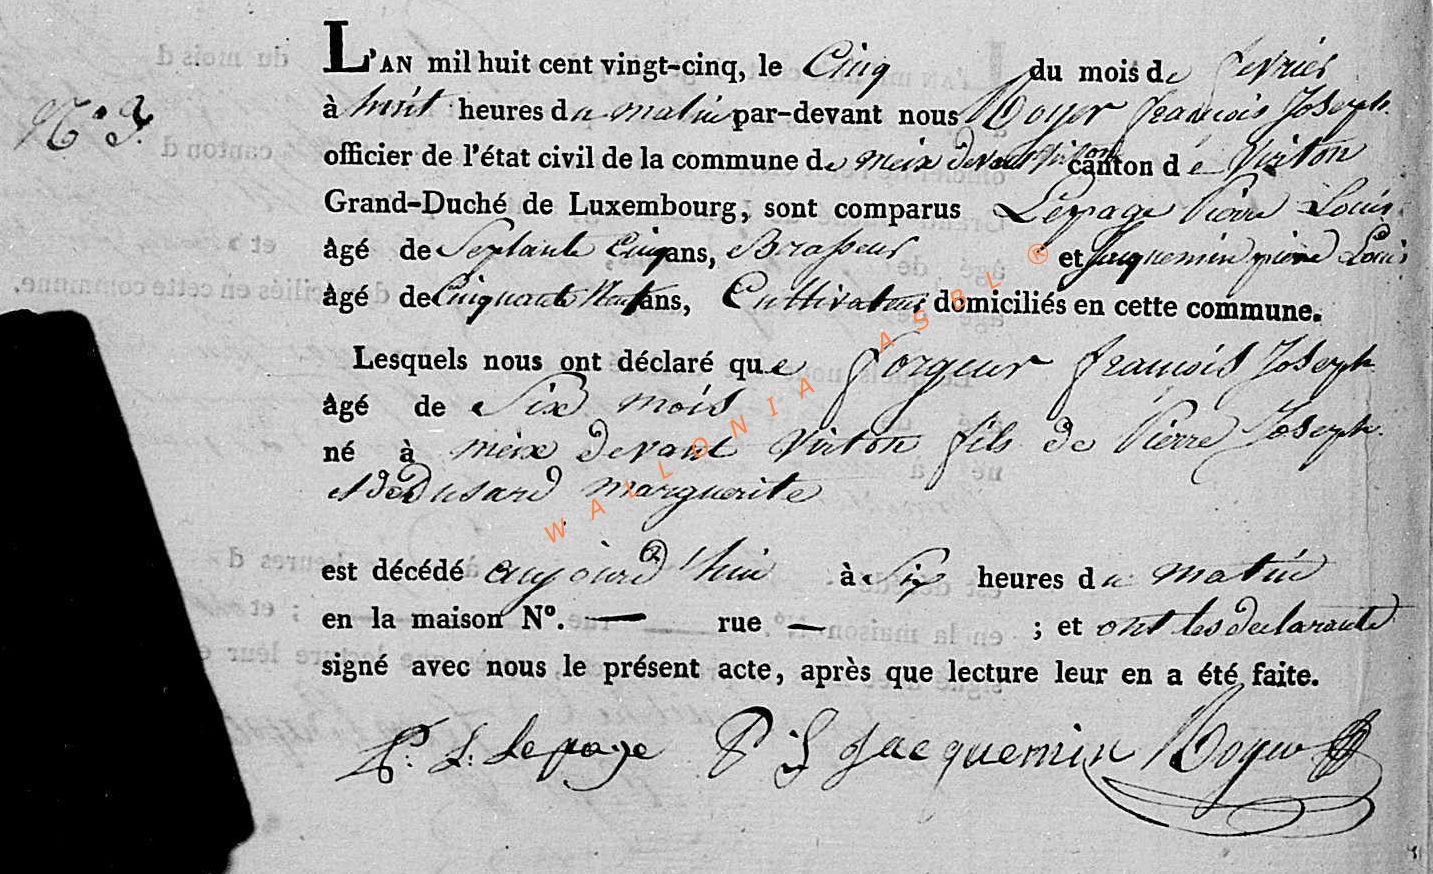 L'AN mil huit cent vingt-cinq, le Cinq du mois de fevrier
à huit heures du matin par-devant nous Boyer francois Joseph
officier de l'état civil de la commune de meix devant Virton canton de Virton
Grand-Duché de Luxembourg, sont comparus Lepage Pierre Louis
âgé de Septante Cinq ans, Brasseur et Jacquemin pierre Louis
âgé de Cinquante Neuf ans, Cultivateur domiciliés en cette commune.
Lesquels nous ont déclaré que forgeur francois Joseph
âgé de Six mois
né à meix devant Virton fils de Pierre Joseph
et de Dusard marguerite
est décédé aujourd'hui à Six heures du matin
en la maison N°. — rue — ; et ont les declarants
signé avec nous le présent acte, après que lecture leur en a été faite.
P. L. Lepage P L Jacquemin Boyer
WALLONIA ASBL ®